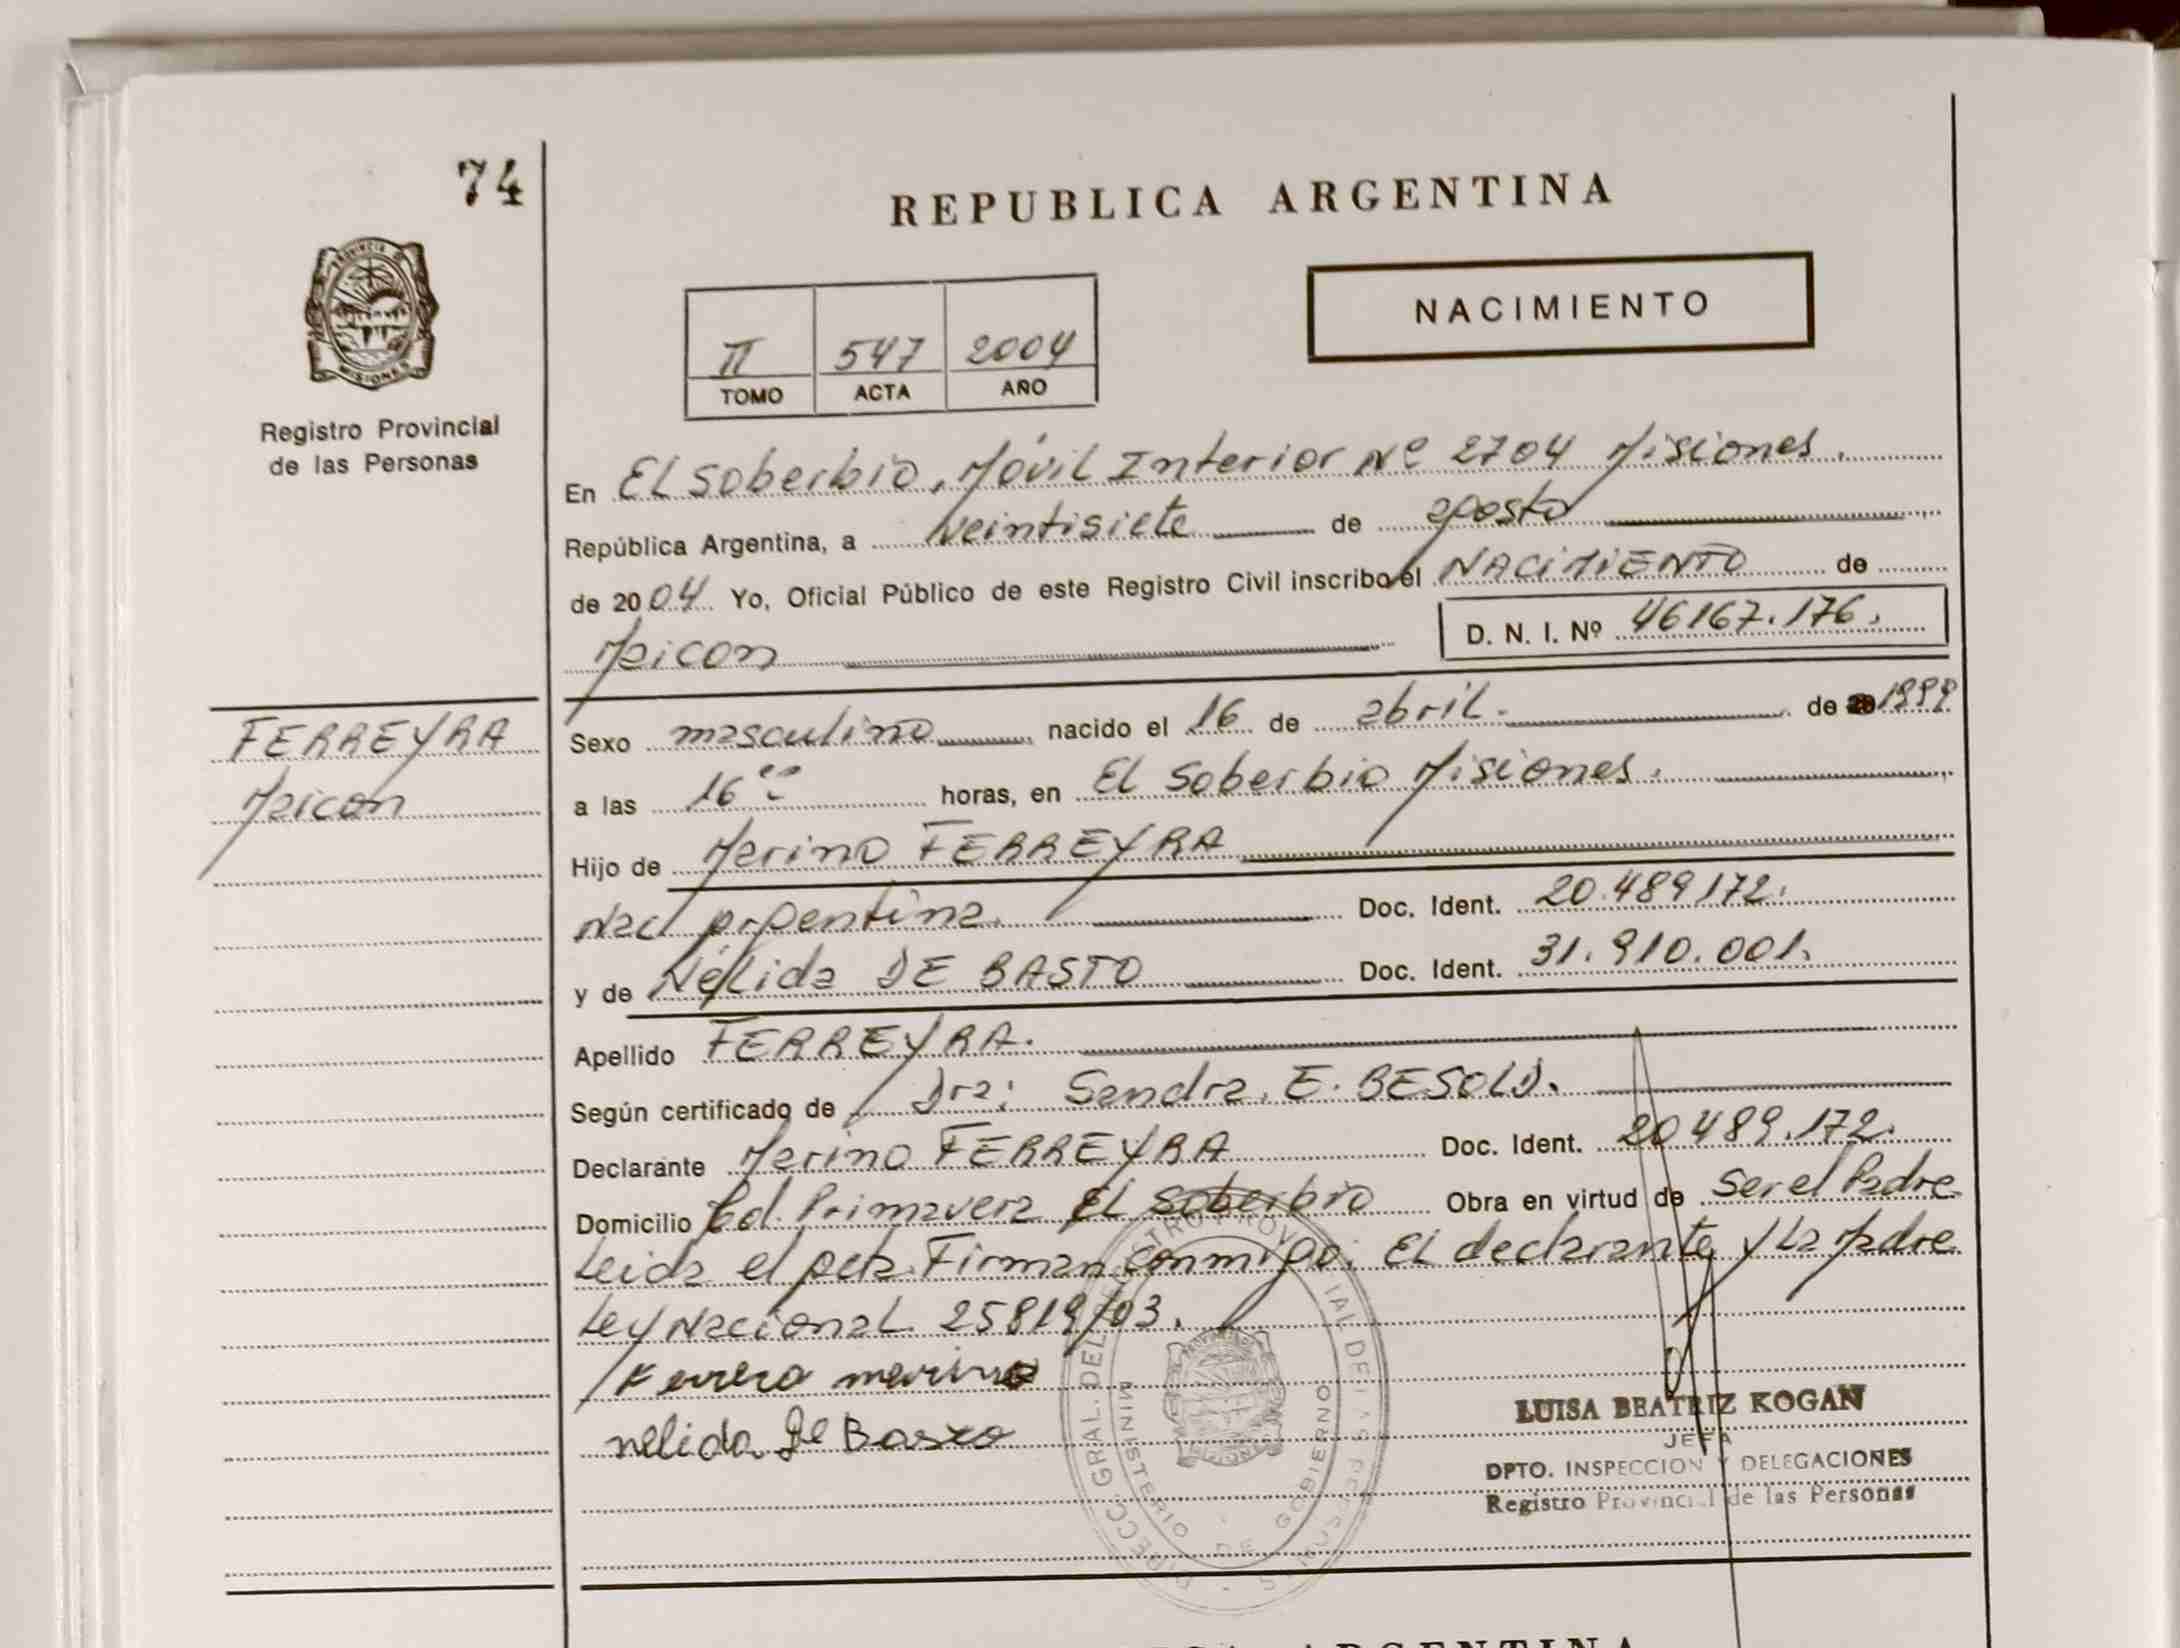 74
REPUBLICA ARGENTINA
PROVINCIA DE
MISIONES
Registro Provincial
de las Personas
NACIMIENTO
II 547 2004
TOMO ACTA AÑO
En El Soberbio, Móvil Interior Nº 2704 Misiones.
República Argentina, a veintisiete de agosto
de 2004 Yo, Oficial Público de este Registro Civil inscribo el NACIMIENTO de
Maicon D. N. I. Nº 46167.176.
FERREYRA
Maicon
Sexo masculino nacido el 16 de abril. de 1999
a las 16 horas, en El Soberbio Misiones.
Hijo de Marino FERREYRA
Nac argentina. Doc. Ident. 20.489172.
y de Nélida DE BASTO Doc. Ident. 31.910.001.
Apellido FERREYRA.
Según certificado de Dra: Sandra. E. BESOLD.
Declarante Marino FERREYRA Doc. Ident. 20489.172.
Domicilio Cd. Primavera El Soberbio Obra en virtud de ser el Padre
Leida el acta. Firman conmigo. El declarante y la Madre
Ley Nacional 25819/03.
Ferrera marino
nelida de Basto
LUISA BEATRIZ KOGAN
JEFA
DPTO. INSPECCION Y DELEGACIONES
Registro Provincial de las Personas
DIRECC. GRAL. DEL REGISTRO PROVINCIAL DE LAS PERSONAS
MINISTERIO DE GOBIERNO
REPUBLICA ARGENTINA